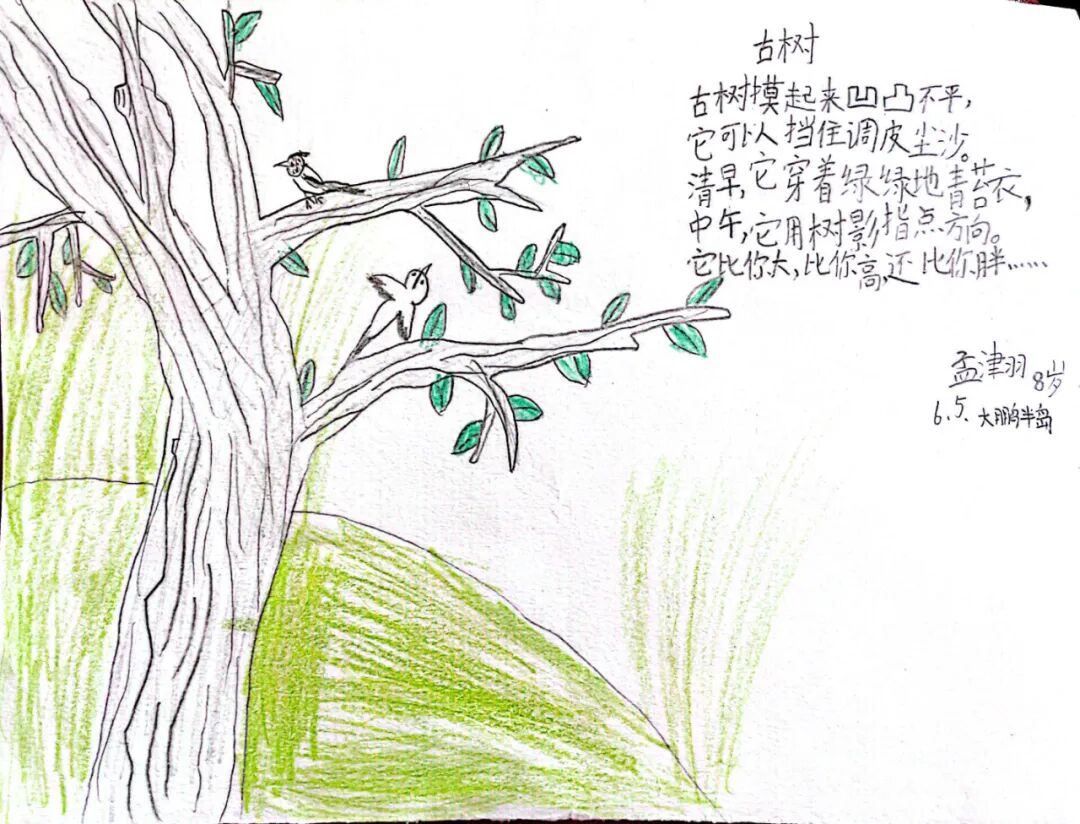 古树
古树摸起来凹凸不平，
它可以挡住调皮尘沙。
清早，它穿着绿绿地青苔衣，
中午，它用树影指点方向。
它比你大，比你高，还比你胖……
孟津羽 8岁
6.5. 大鹏半岛